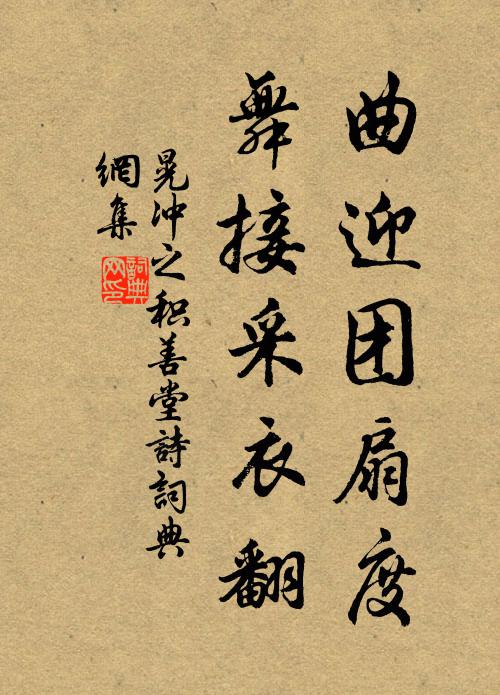 曲迎团扇度
舞接采衣翻
晁冲之积善堂詩詞典
網集
詞典
网印